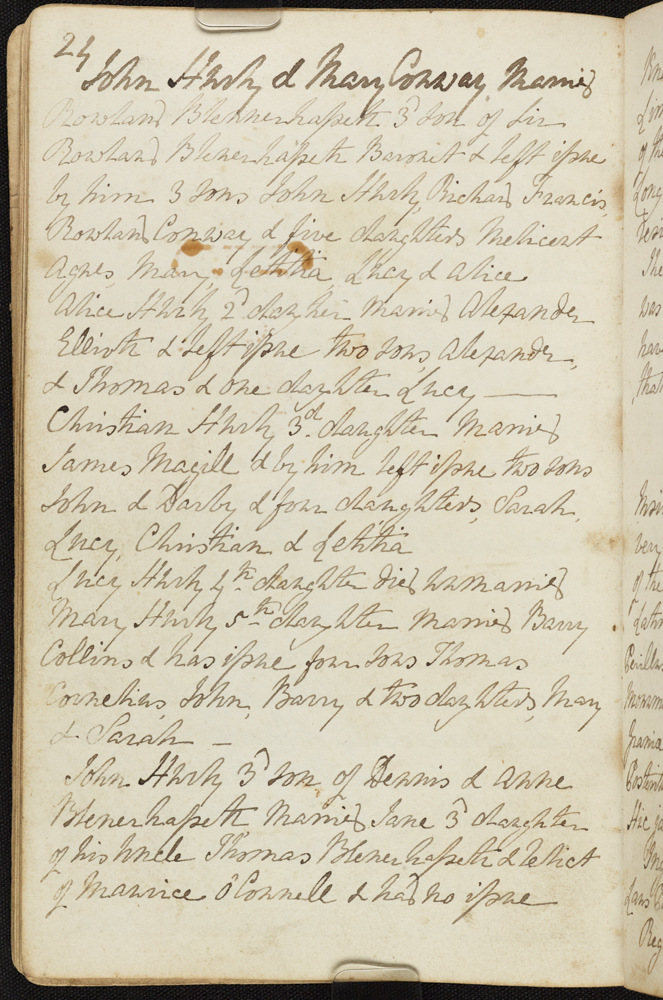 24
John Hurly & Mary Conway Married
Rowland Blennerhassett 3d son of Sir
Rowland Blenerhassett Baronet & left issue
by him 3 sons John Hurly, Richard Francis,
Rowland Conway & five daughters Melicent
Agnes, Mary, Letitia, Lucy & Alice
Alice Hurly 2d daughter Married Alexander
Elliott & left issue two sons, Alexander,
& Thomas & one daughter Lucy —
Christian Hurly 3d. daughter Married
James Magill & by him left issue two sons
John & Darby & four daughters, Sarah,
Lucy, Christian & Letitia
Lucy Hurly 4th. daughter died unmarried
Mary Hurly 5th daughter Married Barry
Collins & has issue four sons Thomas
Cornelius, John, Barry & two daughters, Mary
& Sarah —
John Hurly 3d son of Dennis & Anne
Blenerhassett Married Jane 3d daughter
of his Uncle Thomas Blenerhassett & relict
of Maurice O'Connell & had no issue